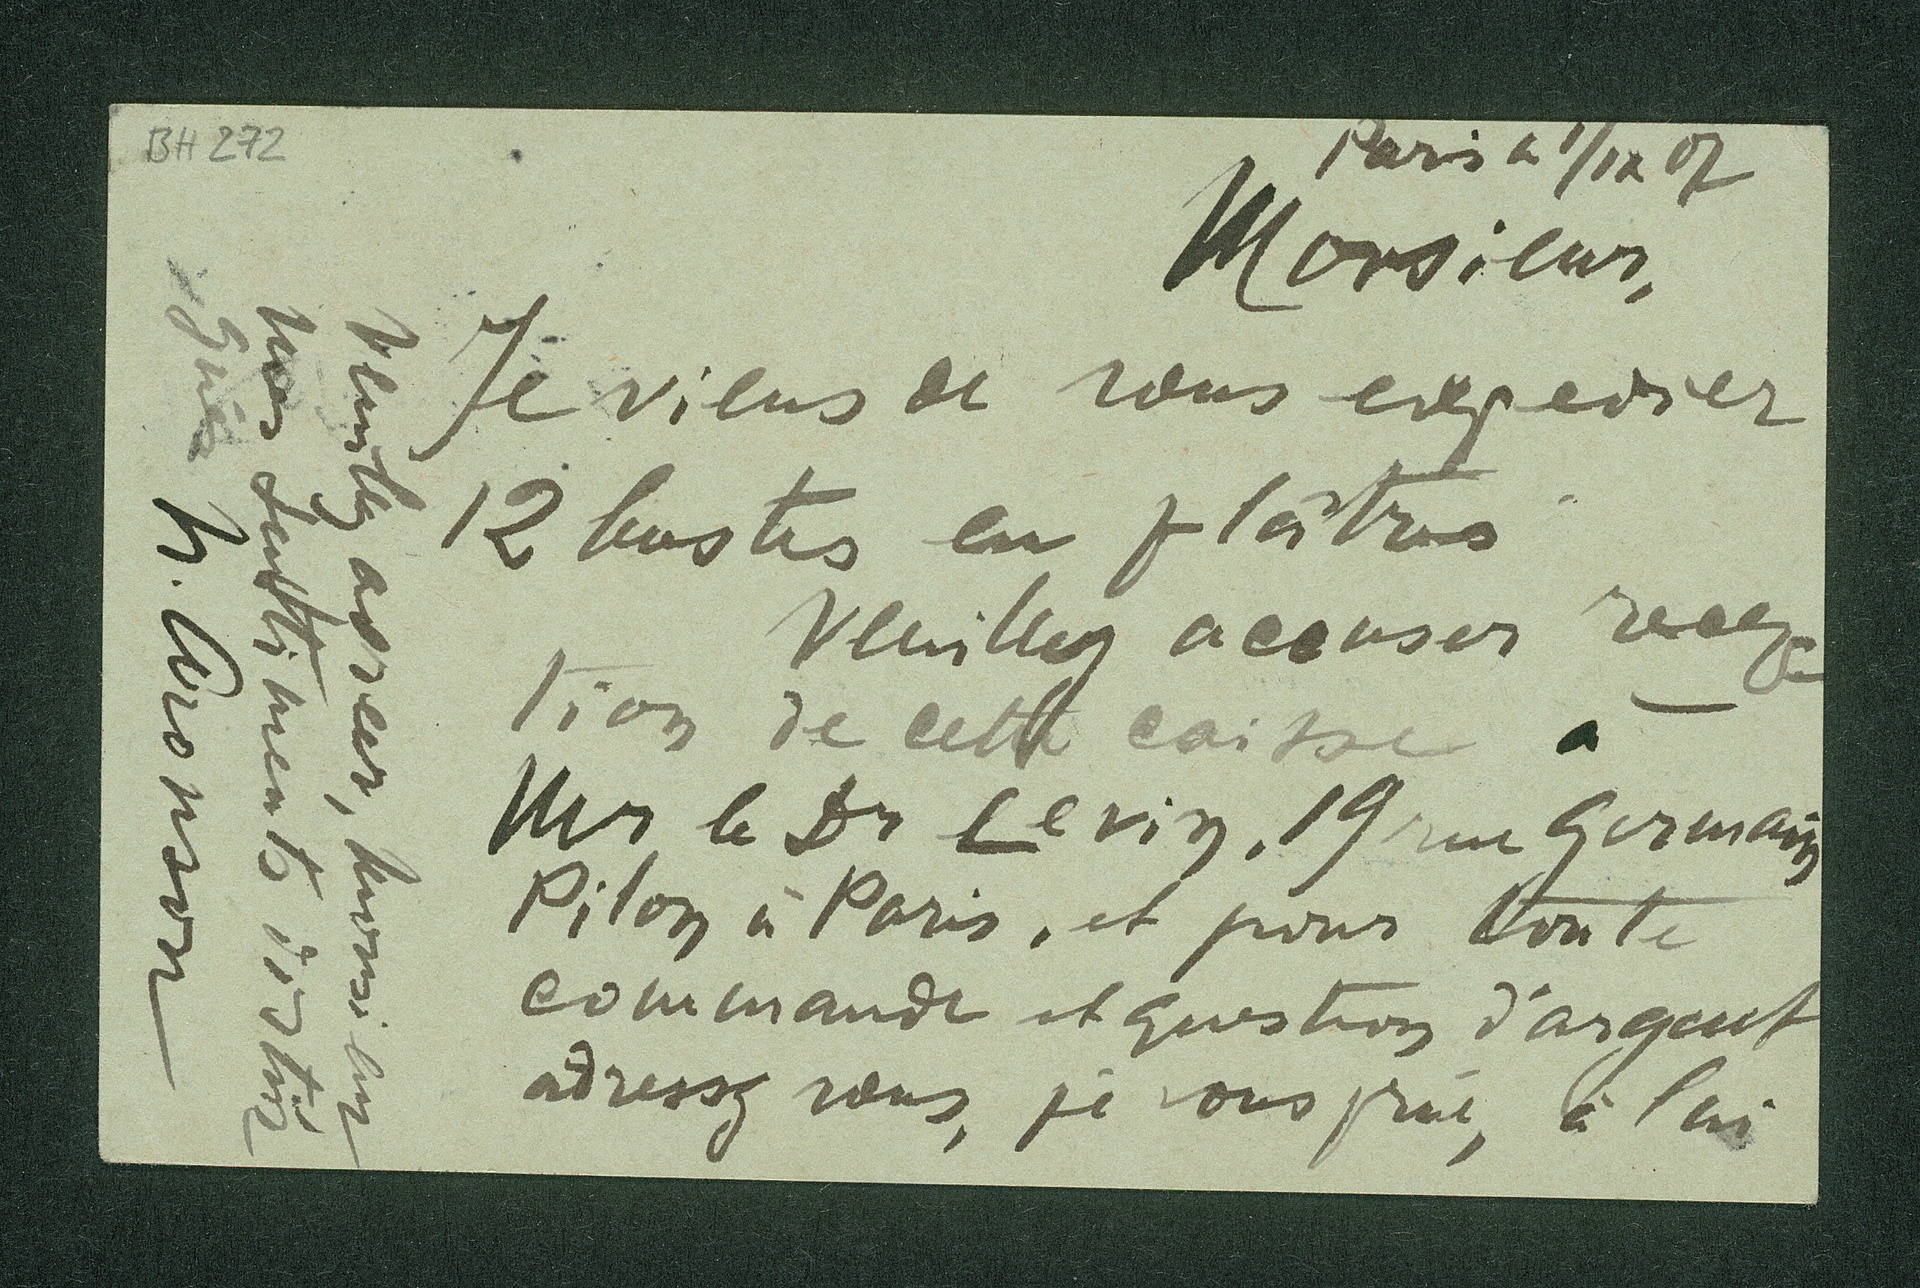 BH 272
Paris a 1/IX 07
Monsieur,
Je viens de vous expedier
12 bustes en plâtres
Veuillez accuser recep
tion de cette caisse à
Mr le Dr Levin, 19 rue Germain
Pilon à Paris, et pour toute
commande et question d'argent
adressez vous, je vous prie, à lui
Veuillez agreer, monsieur
mes sentiments distin
gués
N. Aronson